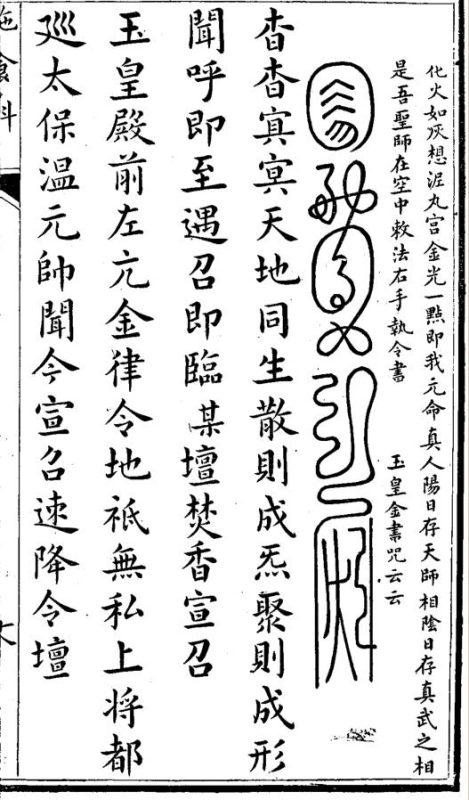 化火如灰想泥丸宮金光一點即我元命真人陽日存天師相陰日存真武之相
是吾聖師在空中敕法右手執令書　玉皇金書咒云云
杳杳冥冥天地同生散則成炁聚則成形
聞呼即至遇召即臨某壇焚香宣召
玉皇殿前左亢金律令地祇無私上将都
廵太保溫元帥聞今宣召速降令壇